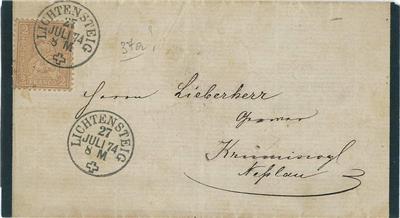 LICHTENSTEIG
27
JULI 74
8 M
37a
Herrn Lieberherr
Krümisvogl
Neßlau
LICHTENSTEIG
27
JULI 74
8 M